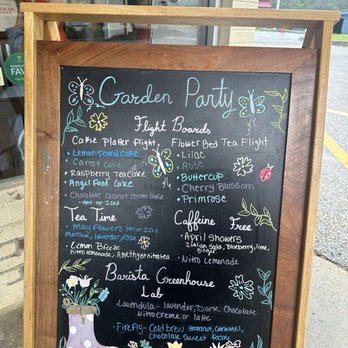 Garden Party
Flight Boards
Cake Platter Flight
Lemon pound cake
Carrot Cake
Raspberry Tea Cake
Angel Food Cake
Chocolate Coconut cream cake
- Hot or Iced
Flower Bed Tea Flight
Lilac
Rose
Buttercup
Cherry Blossom
Primrose
Tea Time
May Flowers Hot or Iced
Matcha, lavender, rose
Lemon Bizzle
Nitro Lemonade,
Caffeine Free
April showers
Italian Soda, Blueberry, lime,
Ginger
Nitro Lemonade
Barista Greenhouse
Lab
Lavendula - lavender, Dark Chocolate
Nitro creme or latte
Firefly - Cold brew Hazelnut, Caramel,
Chocolate Sweet
FAV